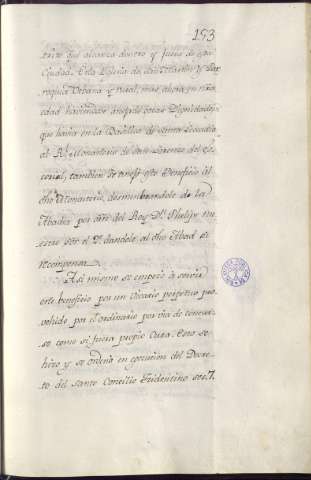 153
terino que alcanza dentro y fuera de esta
Ciudad. Era la Iglesia de San Martin y Par
roquia Urbana y rural, mas ahora en nra
edad haviendose anejado otras Dignidades
que havia en la Basilica de Santa Leocadia
al Rl. Monasterio de San Lorenzo del Es
corial, tambien se anejó este Beneficio al
dho Monasterio, desmembrandole de la
Abadia por orden del Rey Dn. Phelipe nu
estro Sor. el 2º dandole al dho Abad su
recompensa.
Asi mismo se empezó à servir
este beneficio por un Vicario perpetuo pro
vehido por el ordinario por via de concur
so como si fuera propio Cura. Esto se
hizo y se ordenó en egecucion del Decre
to del Santo Concilio Tridentino ses. 7.